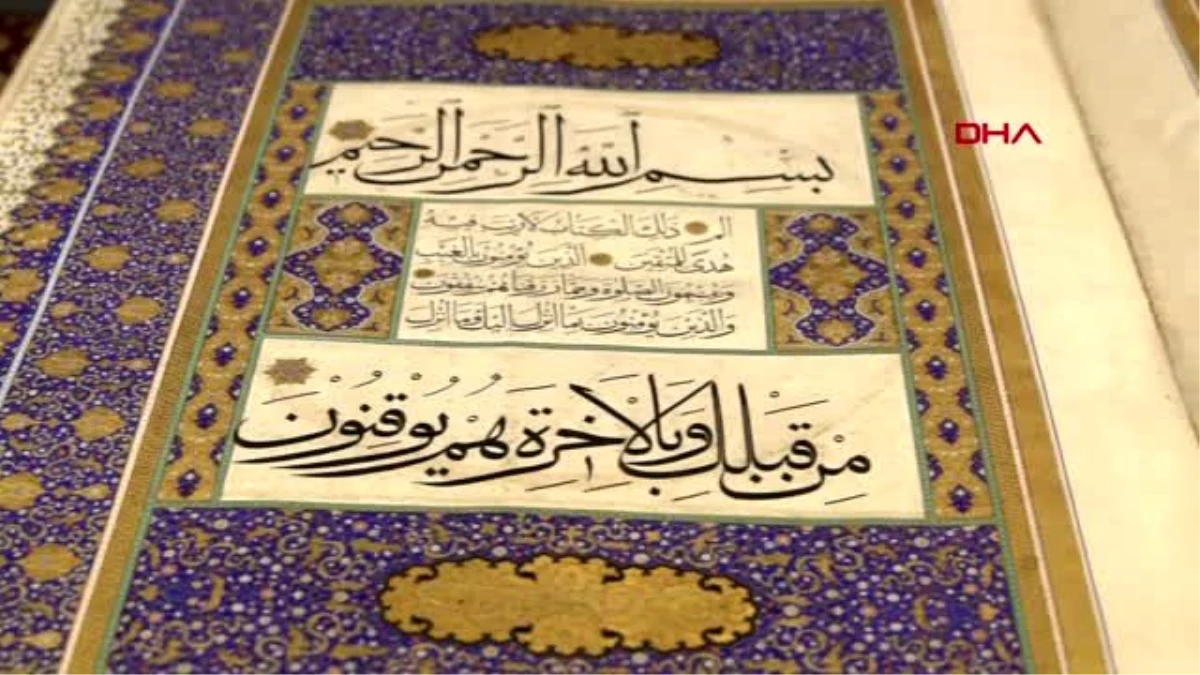 بِسْمِ اللهِ الرَّحْمٰنِ الرَّحِيمِ
الم ذلك الكتاب لا ريب فيه
هدى للمتقين الذين يؤمنون بالغيب
ويقيمون الصلوة ومما رزقناهم ينفقون
والذين يؤمنون بما انزل اليك وما انزل
مِنْ قَبْلِكَ وَبِالْاٰخِرَةِ هُمْ يُوقِنُونَ
DHA